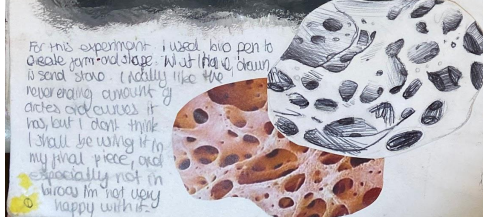 For this experiment I used bio pen to
create form and shape. What I have drawn
is sand stone. I really like the
neverending amount of
circles and curves it
has, but I dont think
I shall be using it in
my final piece, and
especially not in
biro as Im not very
happy with it.